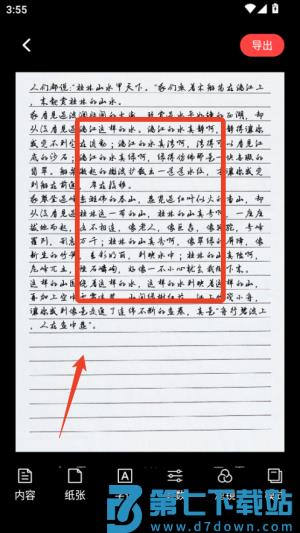 3:55
导出
人们都说：“桂林山水甲天下。”我们乘着木船荡在漓江上，
来观赏桂林的山水。
我看见过波澜壮阔的大海，玩赏过水平如镜的西湖，却
从没看见过漓江这样的水。漓江的水真静啊，静得让你
感觉不到它在流动；漓江的水真清啊，清得可以看见江
底的沙石；漓江的水真绿啊，绿得仿佛那是一块无瑕的
翡翠。船桨激起的微波扩散出一道道水纹，才让你感觉
到船在前进，岸在后移。
我攀登过峰峦雄伟的泰山，游览过红叶似火的香山，却
从没看见过桂林这一带的山，桂林的山真奇啊，一座座
拔地而起，各不相连，像老人，像巨象，像骆驼，奇峰
罗列，形态万千；桂林的山真秀啊，像翠绿的屏障，像
新生的竹笋，色彩明丽，倒映水中；桂林的山真险啊，
危峰兀立，怪石嶙峋，好像一不小心就会栽倒下来。
这样的山围绕着这样的水，这样的水倒映着这样的山，
再加上空中云雾迷蒙，山间绿树红花，江上竹筏小舟，
让你感到像是走进了连绵不断的画卷，真是“舟行碧波上
，人在画中游”。
内容 纸张
第七下载
www.d7down.com